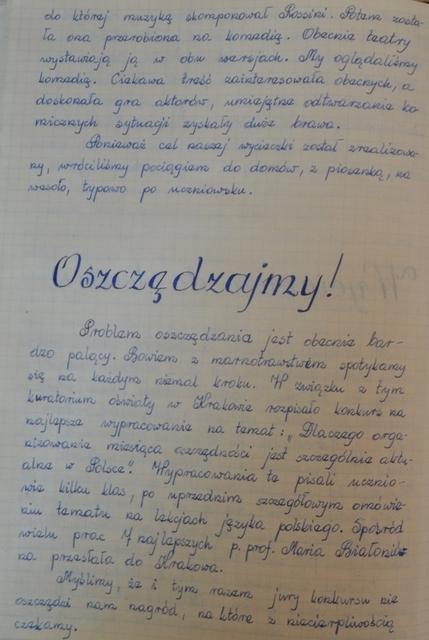 do której muzykę skomponował Rossini. Potem zosta-
ła ona przerobiona na komedię. Obecnie teatry
wystawiają ją w obu wersjach. My oglądaliśmy
komedię. Ciekawa treść zainteresowała obecnych, a
doskonała gra aktorów, umiejętne odtwarzanie ko
micznych sytuacji zyskały duże brawa.
Ponieważ cel naszej wycieczki został zrealizowa-
ny, wróciliśmy pociągiem do domów, z piosenką, na
wesoło, typowo po uczniowsku.
Oszczędzajmy!
Problem oszczędzania jest obecnie bar-
dzo palący. Bowiem z marnotrawstwem spotykamy
się na każdym niemal kroku. W związku z tym
kuratorium oświaty w Krakowie rozpisało konkurs na
najlepsze wypracowanie na temat: „Dlaczego orga-
nizowanie miesiąca oszczędności jest szczególnie aktu-
alne w Polsce". Wypracowania te pisali ucznio-
wie kilku klas, po uprzednim szczegółowym omówie-
niu tematu na lekcjach języka polskiego. Spośród
wielu prac 7 najlepszych p. prof. Maria
na przesłała do Krakowa.
Myślimy, że i tym razem jury konkursu nie
oszczędzi nam nagród, na które z niecierpliwością
czekamy.